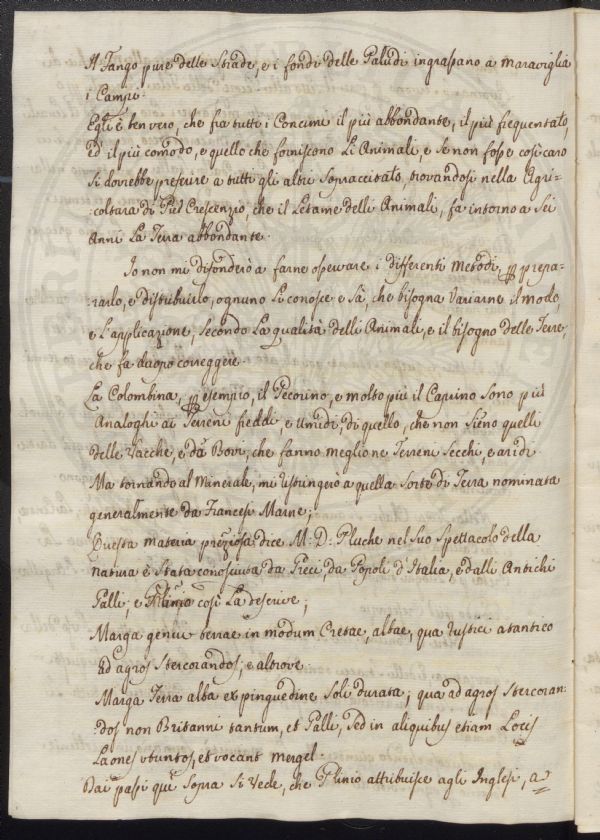 Il Fango pure delle Strade, e i fondi delle Paludi ingrassano a maraviglia
i Campi.
Egli è ben vero, che fra tutti i Concimi il più abbondante, il più frequentato,
ed il più comodo, e quello che forniscono Li Animali, e se non fosse così caro
Si dovrebbe preferire a tutti gli altri Sopraccitato, trovandosi nella Agri-
coltura di Piel Crescenzio, che il Letame delli Animali, fa intorno a Sei
Anni La Terra abbondante.
Io non mi difonderò a farne osservare i differenti Metodi, per prepa-
rarlo, e distribuirlo, ognuno Li conosce e Sà, che bisogna Variarne il modo,
e L'applicazione, Secondo La qualità delli Animali, e il bisogno delle Terre,
che fa duopo correggere
La Colombina, per esempio, il Pecorino, e molto più il Caprino Sono più
Analoghi ai Terreni freddi e umidi, di quello, che non Sieno quelli
delle Vacche, e da Bovi, che fanno meglio ne Terreni Secchi, e aridi
Ma tornando al Minerale, mi ristringerò a quella Sorte di Terra nominata
generalmente da Francesi Marne;
Questa materia preziosa dice M: D: Pluche nel Suo Spettacolo della
natura è Stata conosciuta da Greci, da Popoli d'Italia, e dalli Antichi
Galli; e Plinio così La descrive;
Marga genus terrae in modum Cretae, albae, qua rustici
ad agros Stercorandos; e altrove
Marga Terra alba ex pinguedine Soli durata; qua ad agros Stercoran-
dos non Britanni tantum, et Galli, Sed in aliquibus etiam Locis
et vocant mergel.
Dai passi qui Sopra Si Vede, che Plinio attribuisce agli Inglesi, a